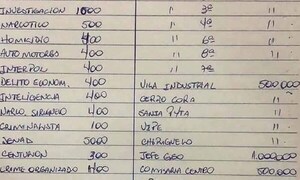 INVESTIGACION 1000 " 3ª "
NARCOTICO 500 " 4ª "
HOMICIDIO 400 " 6ª "
AUTOMOTORES 400 " 8ª "
INTERPOL 400 " 7ª
DELITO ECONOM. 400 VILLA INDUSTRIAL 500,000
INTELIGENCIA 400 CERRO CORA "
NARCO, SIRUNEO 400 SANTA RITA "
CRIMINALISTA 100 YZPE "
SENAD 5000 CHIRIGUELO "
CENTURION 300 JEFE GEO 1.000,000
CRIME ORGANIZADO 400 COMISARIA CENTRO 500,000